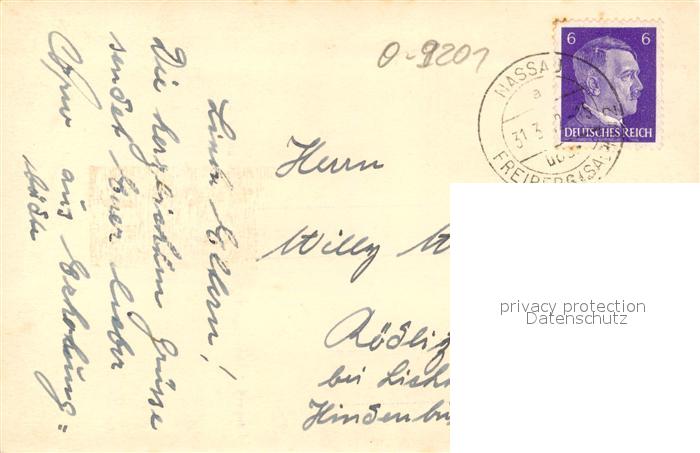 O-9201
6 6
DEUTSCHES REICH
NASSAU
a
31.3.
FREIBERG (SACHS
Liebe Eltern!
Die herzlichsten Grüsse
sendet Euer lieber
aus Erholung=
Herrn
Willy W
Rödlig
bei Licht
Hindenbu
privacy protection
Datenschutz